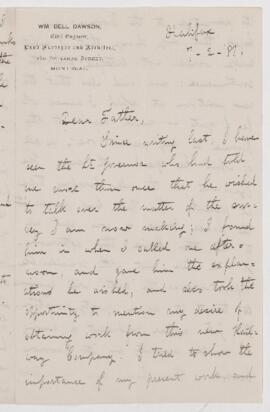 WM BELL DAWSON,
Civil Engineer,
Land Surveyor and Architect,
STREET,
MONTREAL.
Halifax
7-2-87.
Dear Father,
Since writing last I have
seen the Lt Governor who had told
me more than once that he wished
to talk over the matter of the sur-
vey I am now making; I found
him in when I called one after-
noon, and gave him the explan-
ations he wished, and also took the
opportunity to mention my desire of
obtaining work from this new Rail-
way Company. I tried to show the
importance of my present work, and